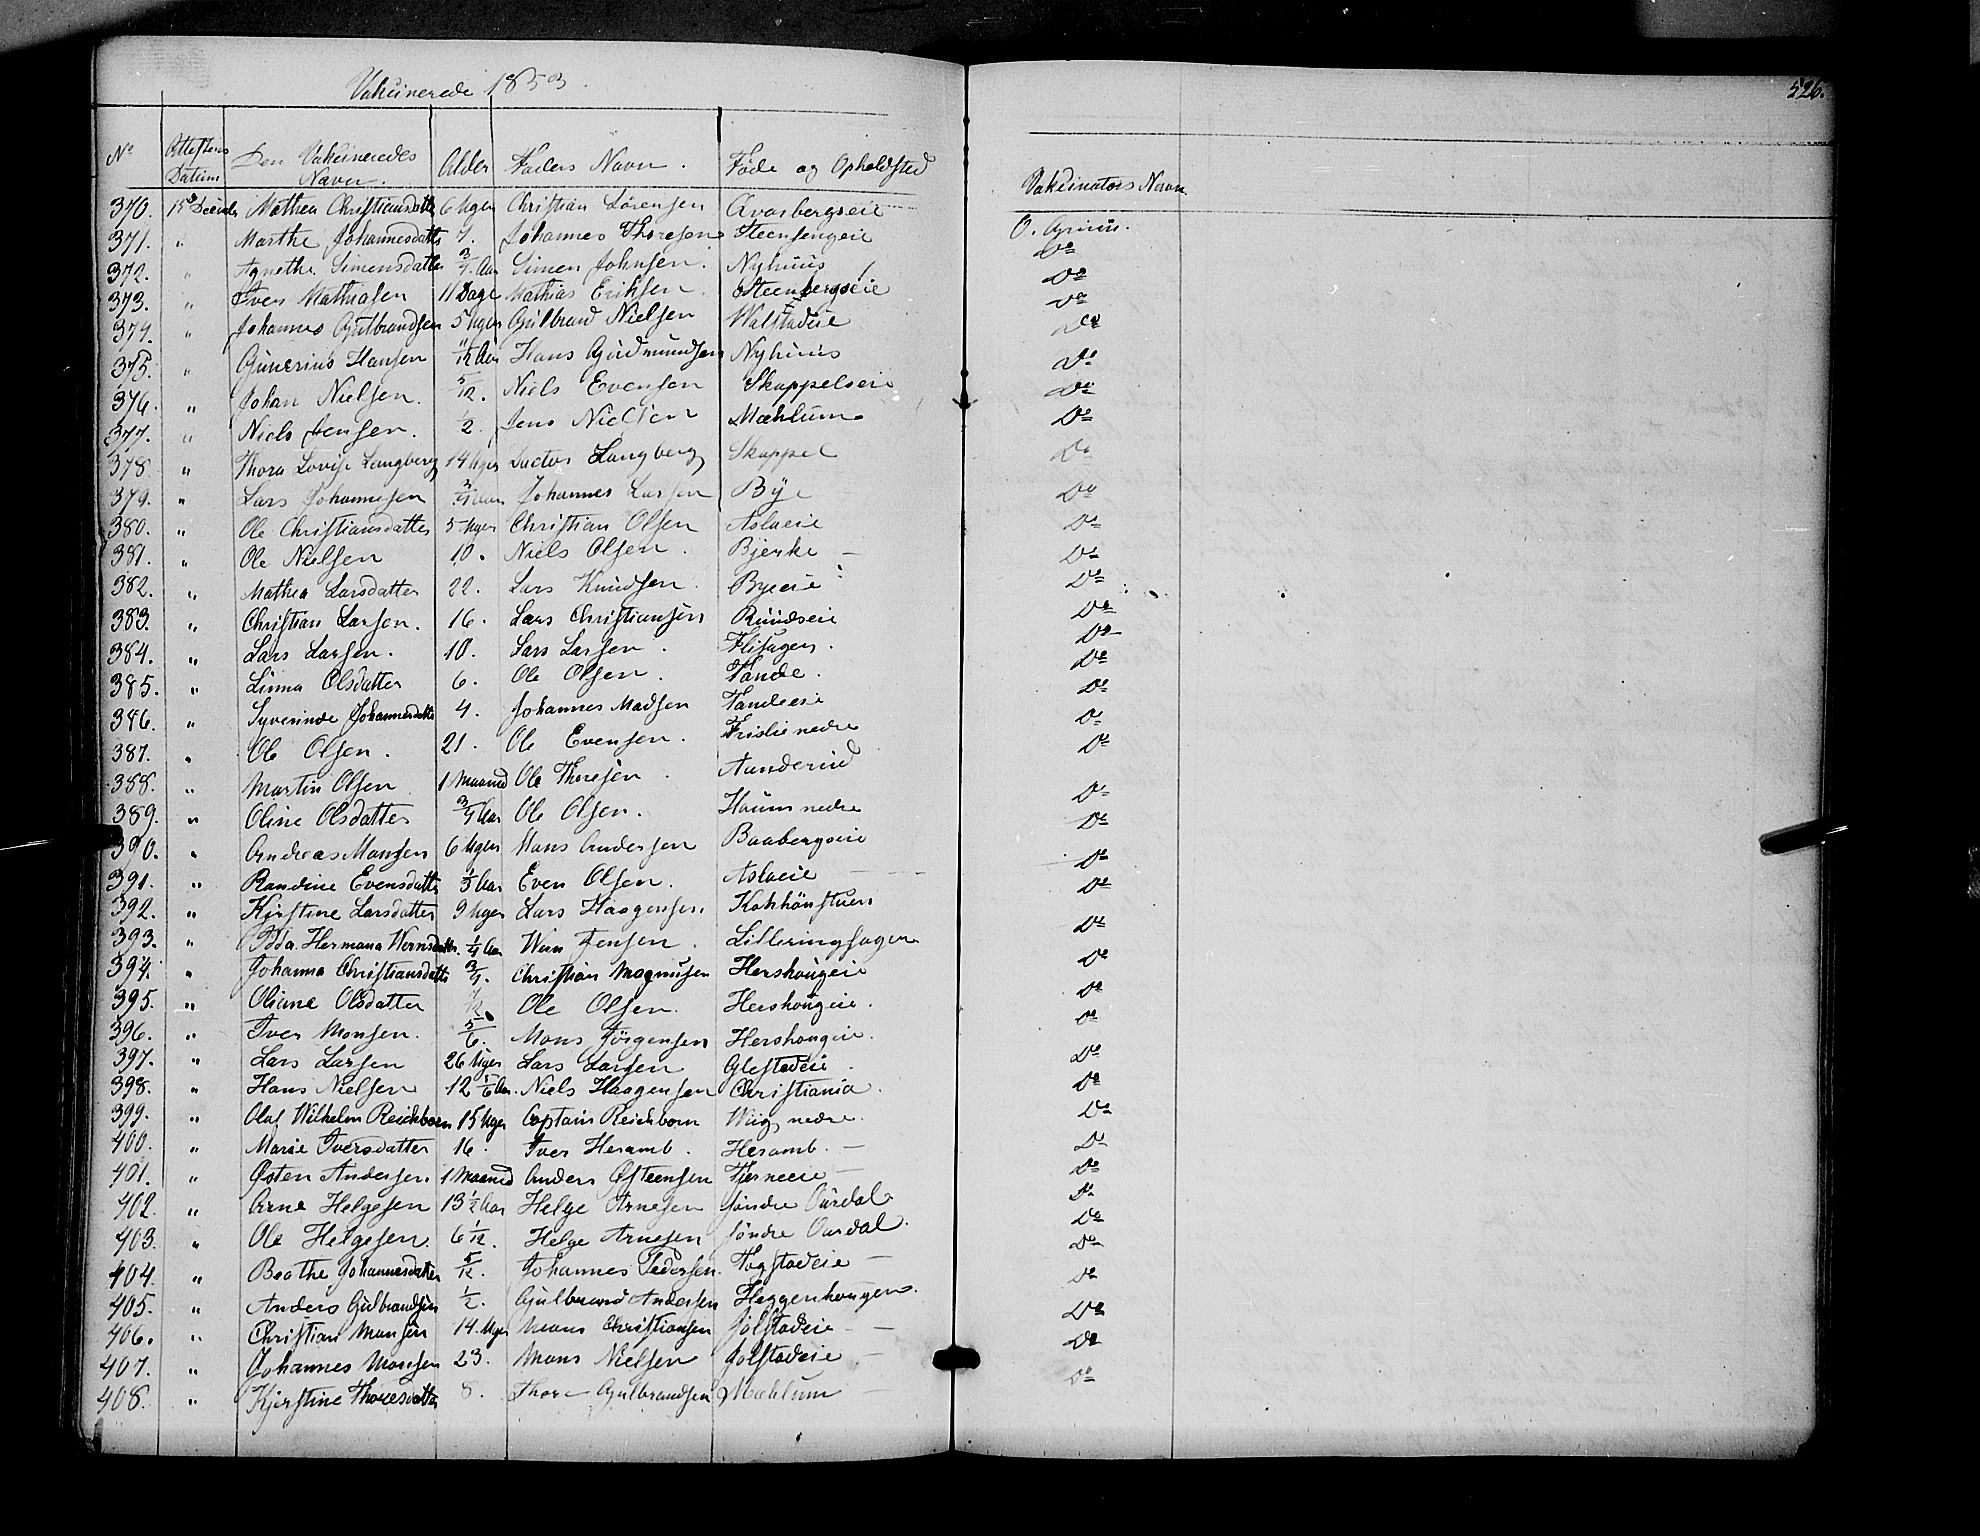 Vakcinerede 1853
526.
No Attestens Datum Den Vakcineredes Navn. Alder Faders Navn. Føde og Opholdsted Vakcinators Navn
370. 15de Decemb Mathea Christiansdatter 6 Uger Christian Sørensen Qvarbergseie O.
371. " Marthe Johannesdatter 7. Johannes Thoresen Steensengeie Do
372. " Agnethe Simensdatter 3/4 Aar Simen Johnsen. Nyhuus Do
373. " Iver Mathiasen 11 Dage Mathias Eriksen. Steenbergseie Do
374. " Johannes Gulbrandsen 5 Uger Gulbrand Nielsen Walstadeie Do
375. " Gunerius Hansen 11/12 Aar Hans Gudmundsen Nyhuus Do
376. " Johan Nielsen. 5/12. Niels Evensen Skappelseie Do
377. " Niels Jensen. 1/2. Jens Nielsen Mæhlum Do
378 " Thora Lovise Langberg 14 Uger Doctor Langberg Skappel Do
379. " Lars Johannesen 3/4 Aar Johannes Larsen Bÿe Do
380. " Ole Christiansdatter 5 Uger Christian Olsen Aslaeie Do
381. " Ole Nielsen 10. Niels Olsen. Bjerke — Do
382. " Mathea Larsdatter 22. Lars Knudsen. Byeeie Do
383. " Christian Larsen. 16. Lars Christiansen Ruudseie Do
384. " Lars Larsen. 10. Lars Larsen. Flisagen. Do
385. " Linna Olsdatter 6. Ole Olsen. Tande. Do
386. " Syverinde Johannesdatter 4. Johannes Madsen Tandeeie Do
387. " Ole Olsen. 21. Ole Evensen. Frislie nedre Do
388. " Martin Olsen 1 Maaned Ole Thoresen. Aunderud Do
389. " Oline Olsdatter 3/4 Aar Ole Olsen. Houm nedre Do
390. " Andreas Monsen 6 Uger Mons Andersen Baabergseie Do
391. " Randine Evensdatter 1/3 Aar Even Olsen. Aslaeie Do
392. " Kirstine Larsdatter 9 Uger Lars Haagensen Kokhönstuen Do
393. " Idda Hermana Wernsdatter. 1/4 Aar Wern Jensen. Lilleringsagen Do
394. " Johanna Christiansdatter 3/4. Christian Magnusen Hershougeie Do
395. " Oliane Olsdatter /12. Ole Olsen. Hershougeie. Do
396. " Iver Monsen. 5/6. Mons Jörgensen Hershougeie. Do
397. " Lars Larsen 26 Uger Lars Larsen Glestadeie Do
398. " Hans Nielsen 12 1/6 Aar. Niels Haagensen Christiania. Do
399. " Olaf Wilhelm Reichborn 15 Uger Captain Reichborn Wiig nedre. Do
400. " Marie Iversdatter 16. Iver Heramb. Heramb. — Do
401. " Østen Andersen. 1 Maaned Anders Østensen Tjerneeie — Do
402. " Arne Helgesen 13 1/2 Aar Helge Arnesen søndre Ourdal Do
403. " Ole Helgesen. 6 1/12. Helge Arnesen søndre Ourdal. Do
404. " Beathe Johannesdatter 5/12. Johannes Pedersen. Fogstadeie — Do
405. " Anders Gulbrandsen 1/2. Gulbrand Andersen Heggenhougen. Do
406. " Christian Monsen 14 Uger Mons Christiansen Jolstadeie — Do
407. " Johannes Monsen 23. Mons Nielsen Jolstadeie — Do
408. " Kjerstine Thoresdatter 8. Thore Gulbrandsen Mæhlum — Do